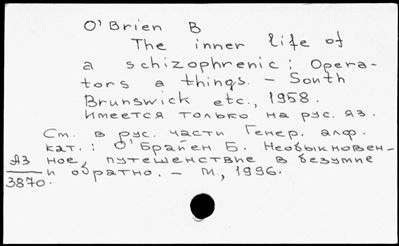 O'Brien B
The inner life of
a schizophrenic: Opera-
tors a things. – South
Brunswick etc., 1958.
Имеется только на рус. яз.
См. в рус. части Генер. алф.
кат.: О'Брайен Б. Необыкновен-
ное путешенствие в безумие
и обратно. – М., 1996.
Яз
3870.